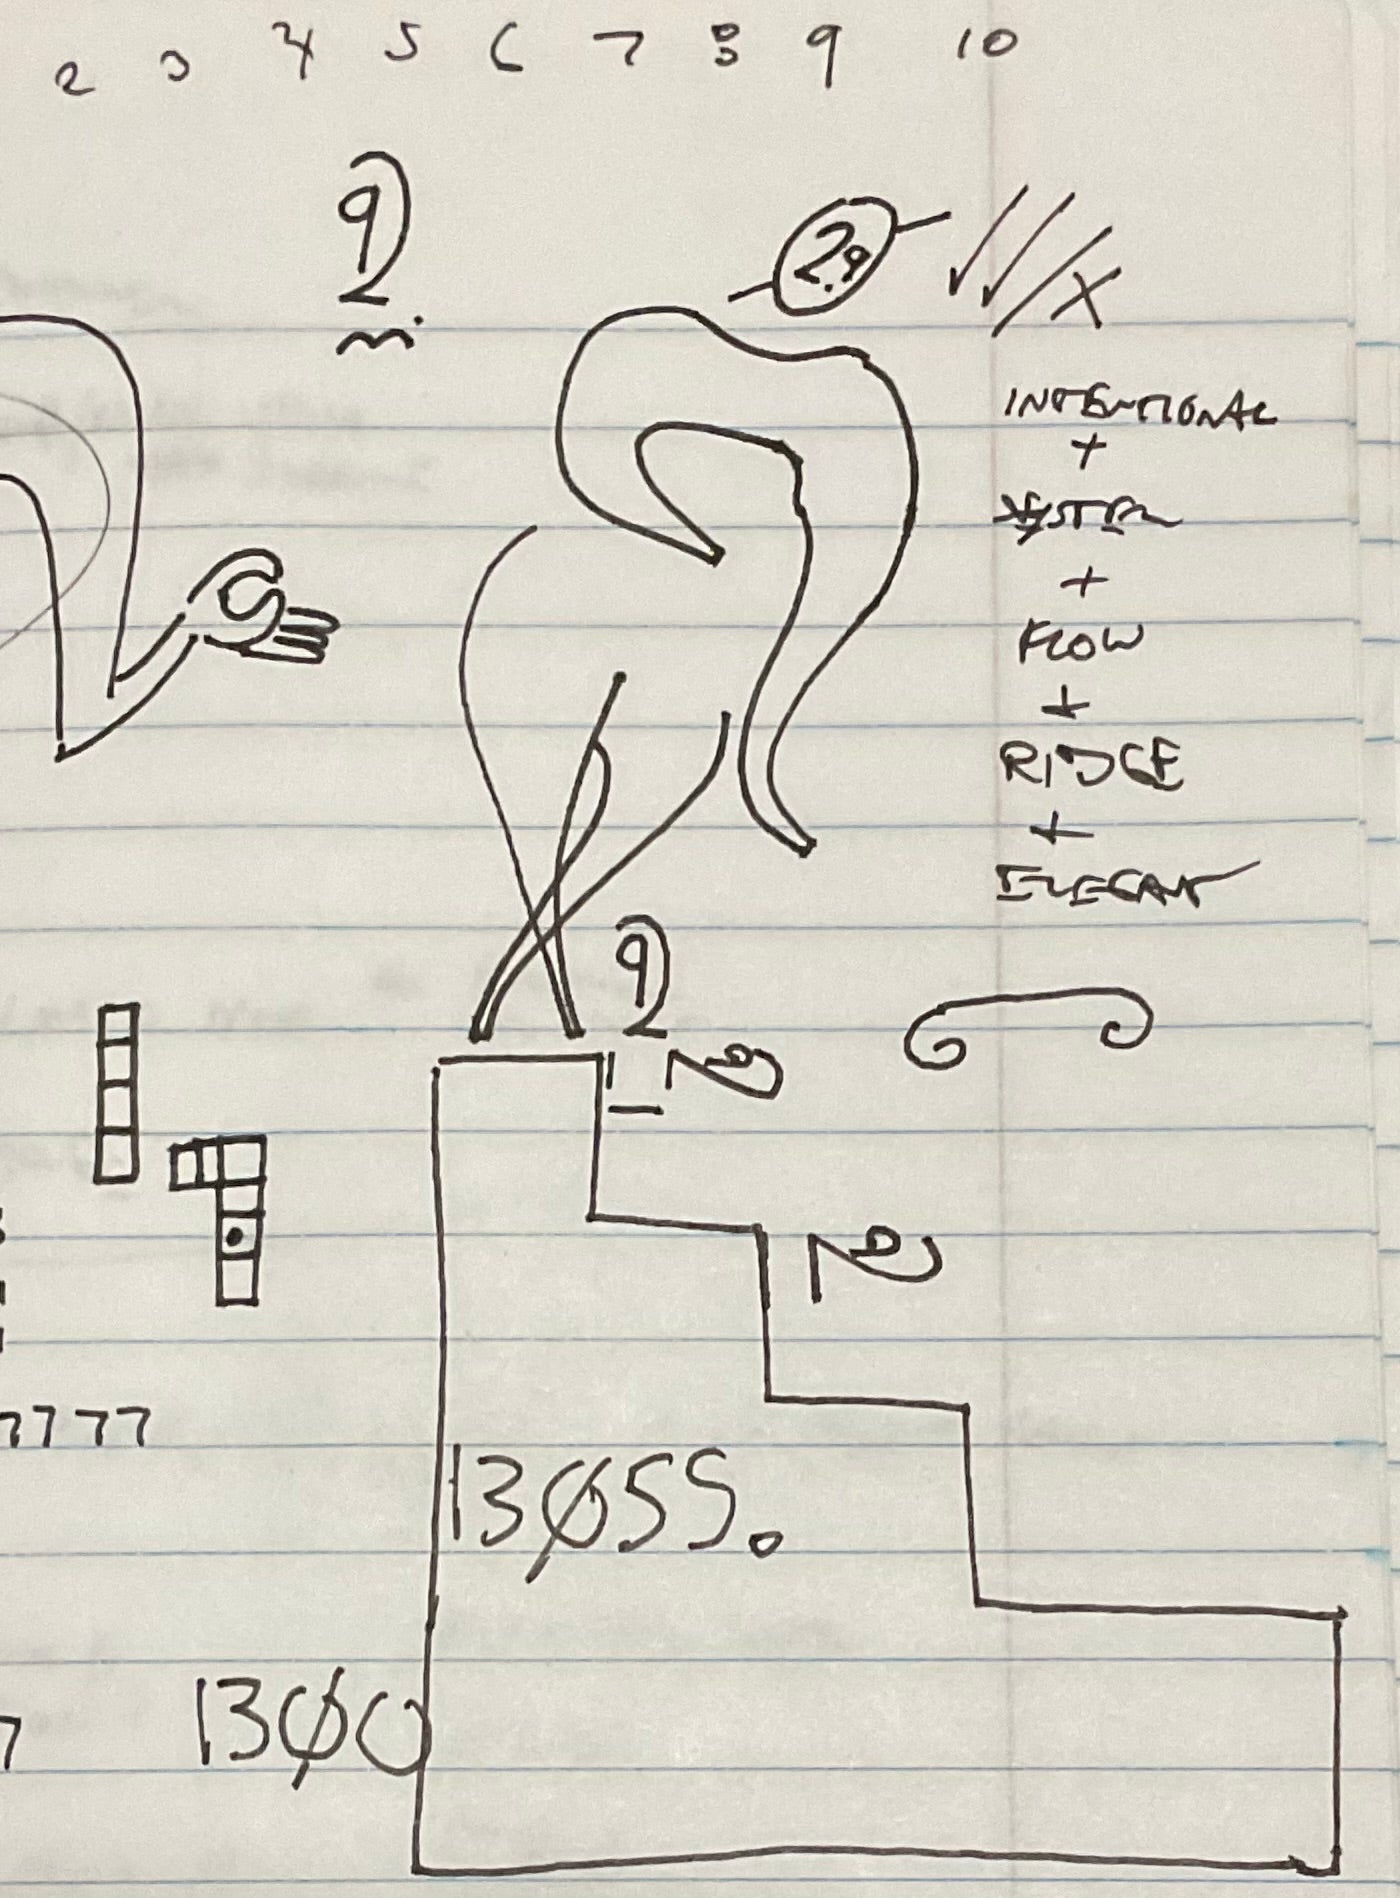 2 3 4 5 6 7 8 9 10
29
INTENTIONAL
+
SYSTEM
+
FLOW
+
RIDGE
+
ELEGANT
7777
13Ø55.
13Ø0
7